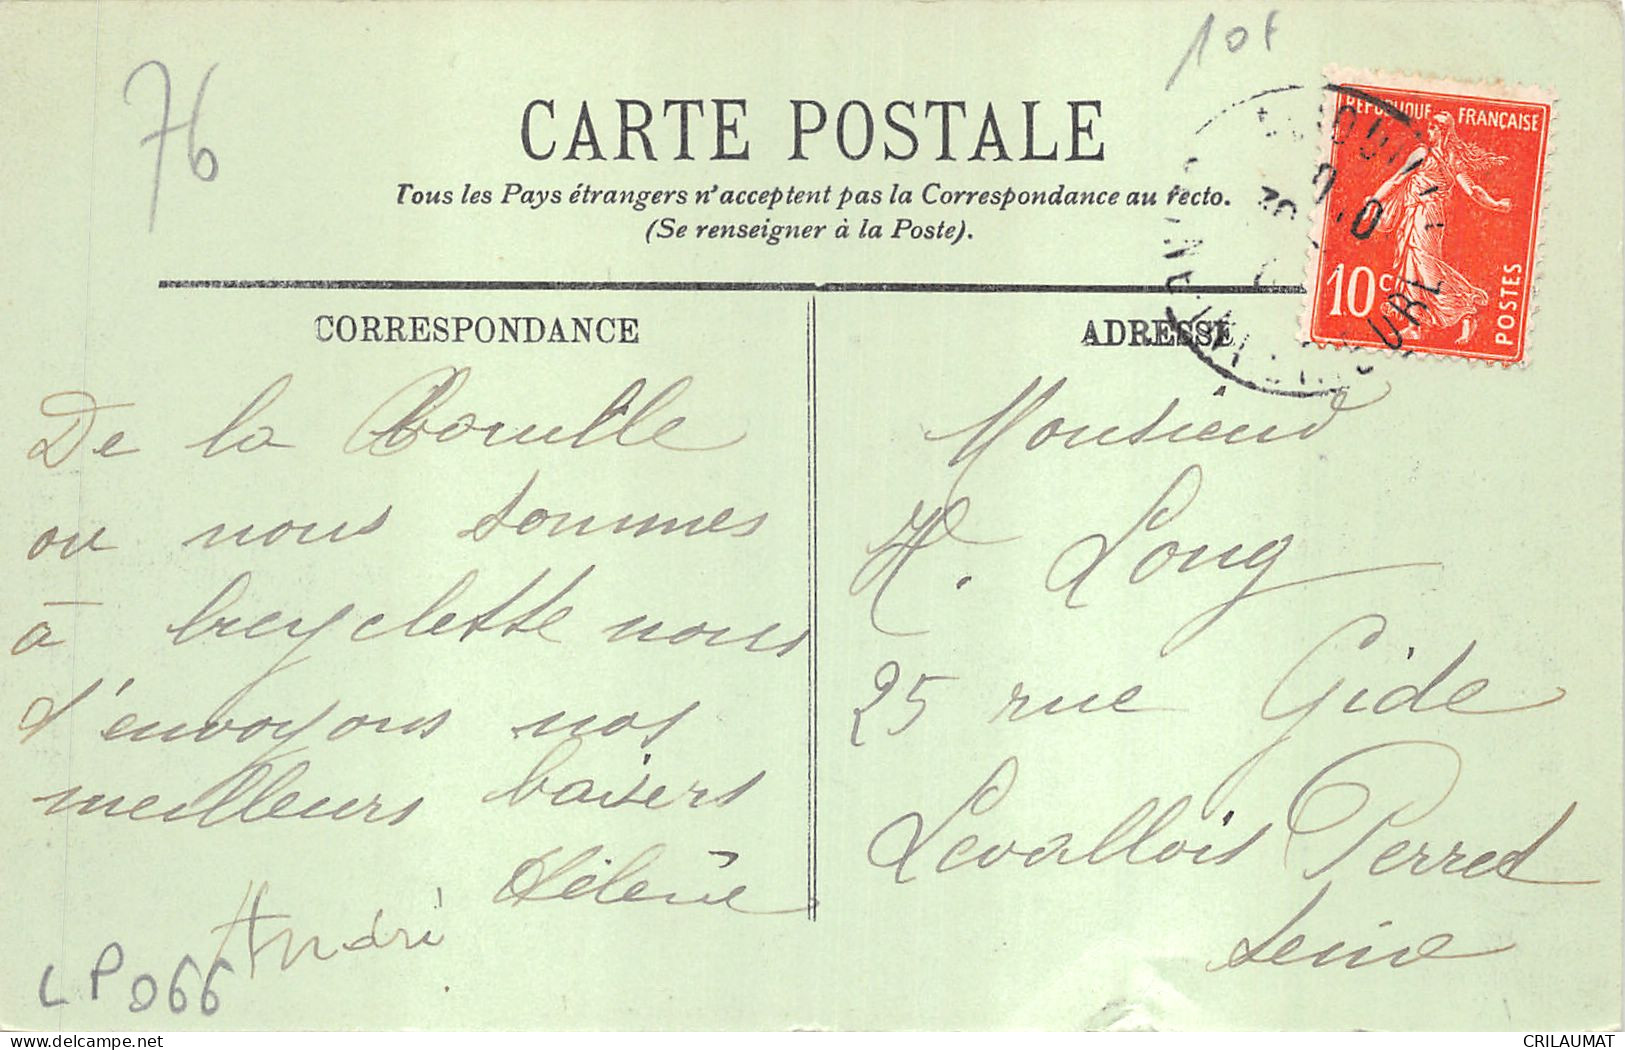 76
10f
CARTE POSTALE
Tous les Pays étrangers n'acceptent pas la Correspondance au recto.
(Se renseigner à la Poste).
REPUBLIQUE FRANÇAISE
10c
POSTES
CORRESPONDANCE
ADRESSE
De la Bouille
ou nous sommes
à bicyclette nous
t'envoyons nos
meilleurs baisers
Hélène
André
LP066
Monsieur
H. Long
25 rue Gide
Levallois Perret
Seine
CRILAUMAT